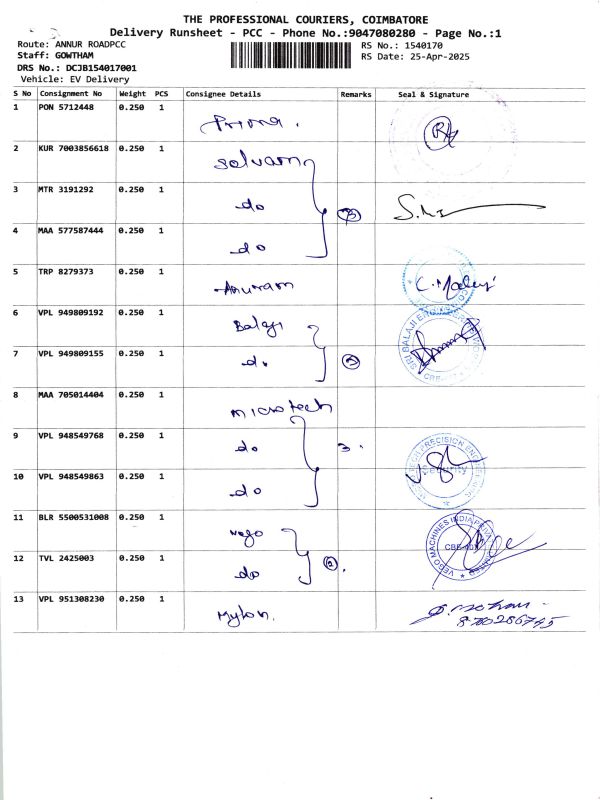 THE PROFESSIONAL COURIERS, COIMBATORE
Delivery Runsheet - PCC - Phone No.:9047080280 - Page No.:1
Route: ANNUR ROADPCC
Staff: GOWTHAM
DRS No.: DCJB154017001
Vehicle: EV Delivery
RS No.: 1540170
RS Date: 25-Apr-2025
S No Consignment No Weight PCS Consignee Details Remarks Seal & Signature
1 PON 5712448 0.250 1 Prima.
2 KUR 7003856618 0.250 1 Selvam
3 MTR 3191292 0.250 1 do
4 MAA 577587444 0.250 1 do
5 TRP 8279373 0.250 1 Anuram
6 VPL 949809192 0.250 1 Balaji
7 VPL 949809155 0.250 1 do
8 MAA 705014404 0.250 1 microtech
9 VPL 948549768 0.250 1 do 3
10 VPL 948549863 0.250 1 do
11 BLR 5500531008 0.250 1
12 TVL 2425003 0.250 1 do 2
13 VPL 951308230 0.250 1 Mylon.
SRI BALAJI
PRECISION
Security
VEGO MACHINES INDIA PRIVATE LIMITED